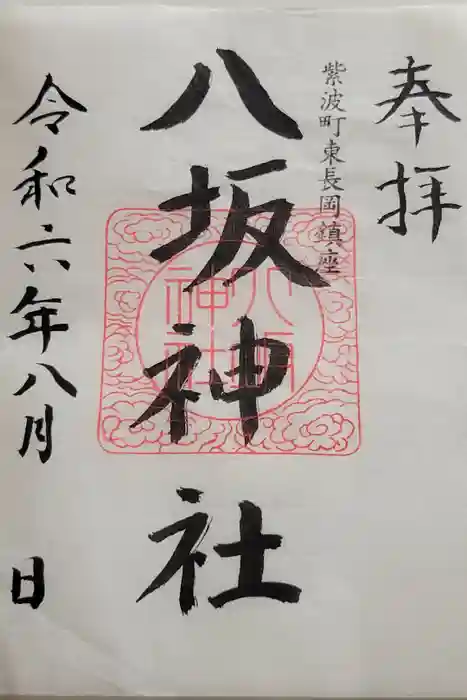 奉拝
紫波町東長岡鎮座
八坂神社
八坂
神社
令和六年八月 日